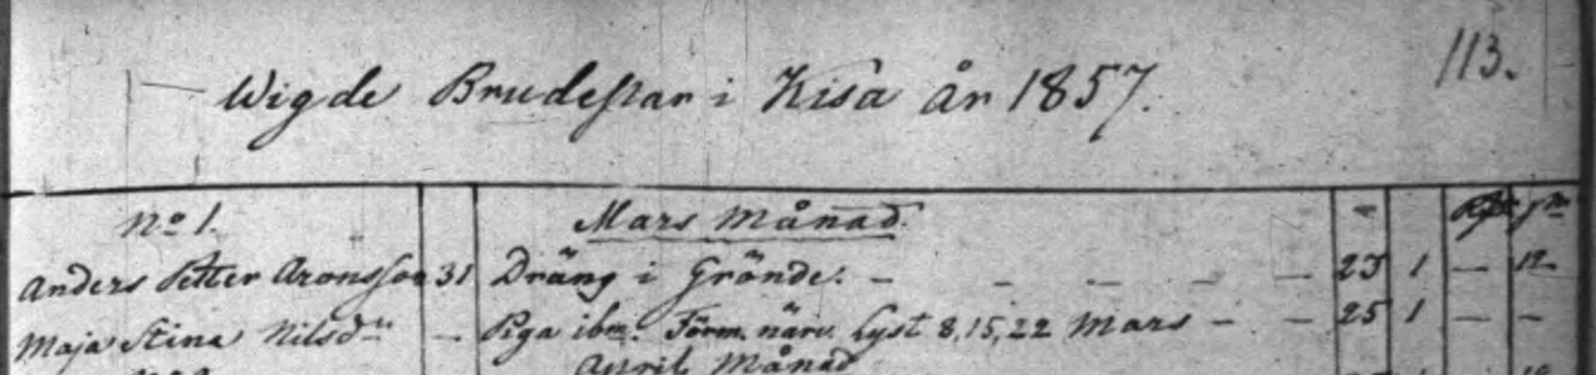 113.
Wigde Brudepar i Kisa år 1857.
No 1. Mars Månad.
Anders Petter Aronsson 31 Dräng i Grönde. - - - - - 25 1 - 12
Maja Stina Nilsdr - Piga ibm. Förm. närv. Lyst 8, 15, 22 Mars - - 25 1 - -
April Månad